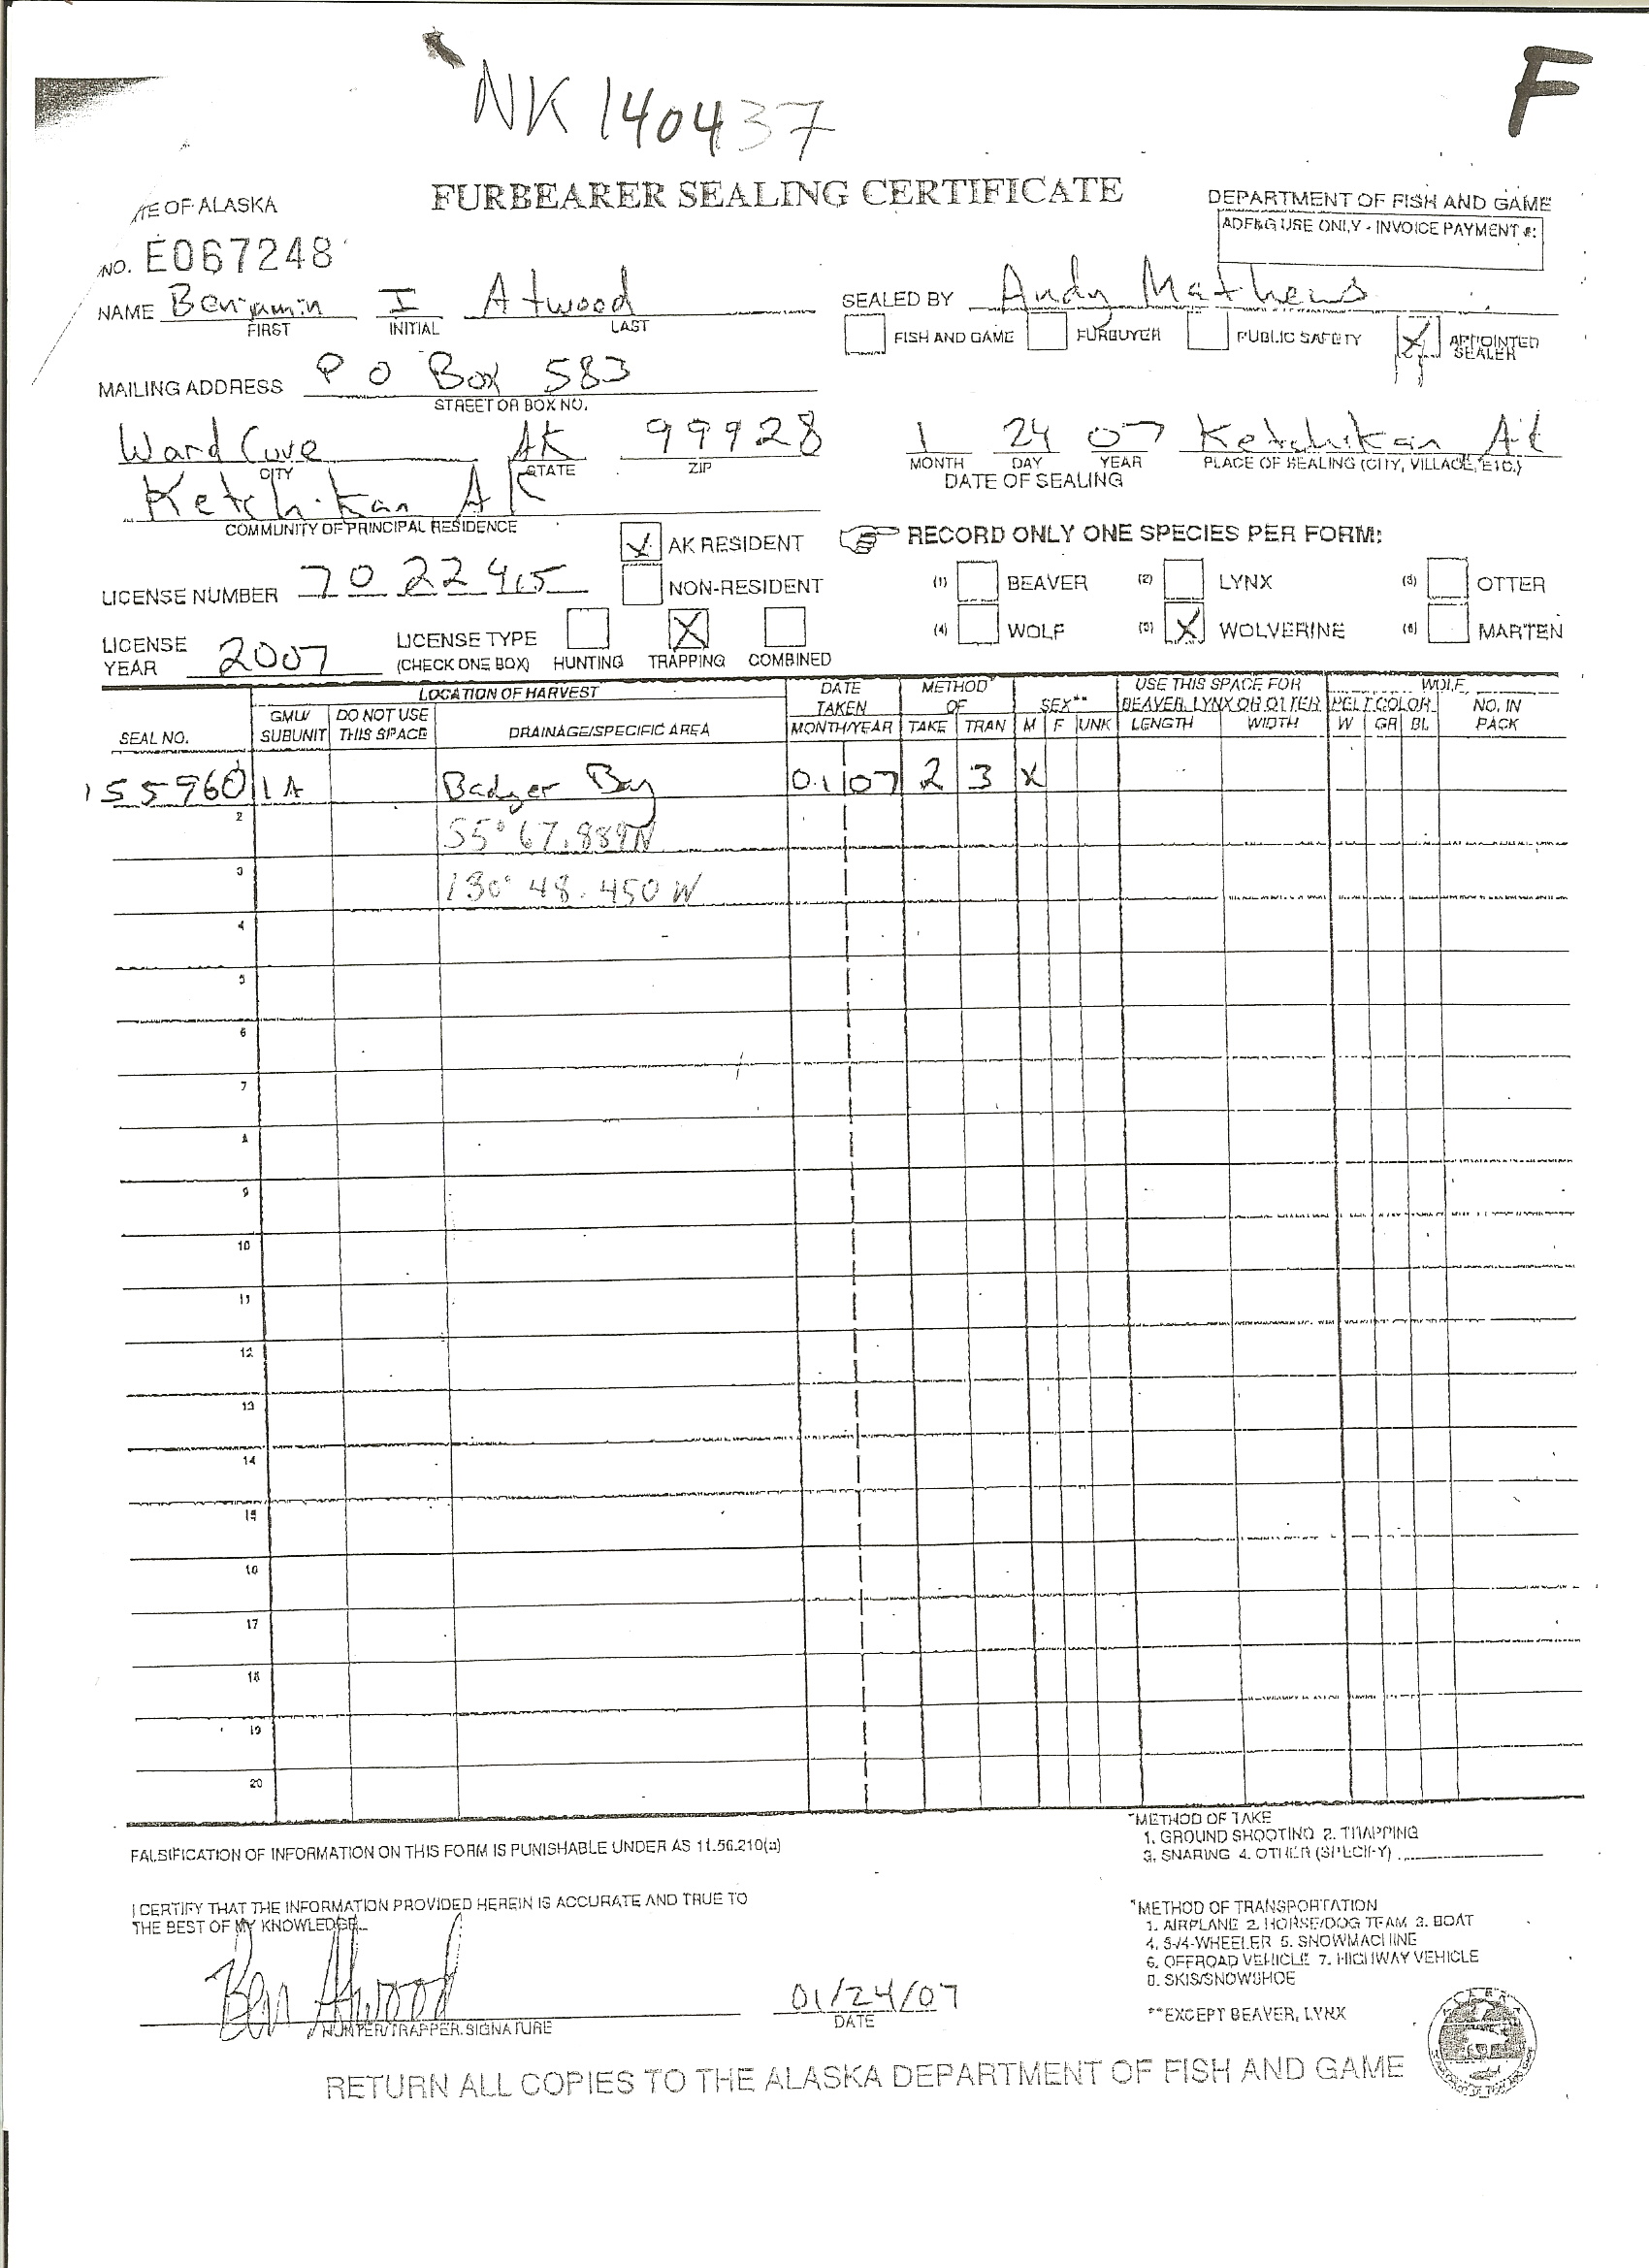 NK 140437
F
TE OF ALASKA
FURBEARER SEALING CERTIFICATE
DEPARTMENT OF FISH AND GAME
ADF&G USE ONLY - INVOICE PAYMENT #:
NO. E067248
NAME Benjamin I Atwood
FIRST INITIAL LAST
SEALED BY Andy Mathews
FISH AND GAME FURBUYER PUBLIC SAFETY X APPOINTED SEALER
MAILING ADDRESS P O Box 583
STREET OR BOX NO.
Ward Cove AK 99928
CITY STATE ZIP
1 24 07 Ketchikan AK
MONTH DAY YEAR PLACE OF SEALING (CITY, VILLAGE, ETC.)
DATE OF SEALING
Ketchikan AK
COMMUNITY OF PRINCIPAL RESIDENCE
X AK RESIDENT
NON-RESIDENT
RECORD ONLY ONE SPECIES PER FORM:
(1) BEAVER (2) LYNX (3) OTTER
(4) WOLF (5) X WOLVERINE (6) MARTEN
LICENSE NUMBER 7022495
LICENSE YEAR 2007
LICENSE TYPE
(CHECK ONE BOX) HUNTING X TRAPPING COMBINED
LOCATION OF HARVEST DATE TAKEN METHOD OF SEX** USE THIS SPACE FOR BEAVER, LYNX OR OTTER WOLF
SEAL NO. GMU/SUBUNIT DO NOT USE THIS SPACE DRAINAGE/SPECIFIC AREA MONTH/YEAR TAKE TRAN M F UNK LENGTH WIDTH PELT COLOR W GR BL NO. IN PACK
155960 1A Badger Bay 01 07 2 3 X
2 55° 67.889N
3 130° 48.450 W
4
5
6
7
8
9
10
11
12
13
14
15
16
17
18
19
20
FALSIFICATION OF INFORMATION ON THIS FORM IS PUNISHABLE UNDER AS 11.56.210(a)
*METHOD OF TAKE
1. GROUND SHOOTING 2. TRAPPING
3. SNARING 4. OTHER (SPECIFY)
I CERTIFY THAT THE INFORMATION PROVIDED HEREIN IS ACCURATE AND TRUE TO
THE BEST OF MY KNOWLEDGE.
*METHOD OF TRANSPORTATION
1. AIRPLANE 2. HORSE/DOG TEAM 3. BOAT
4. 3-/4-WHEELER 5. SNOWMACHINE
6. OFFROAD VEHICLE 7. HIGHWAY VEHICLE
8. SKIS/SNOWSHOE
**EXCEPT BEAVER, LYNX
Ben Atwood 01/24/07
HUNTER/TRAPPER SIGNATURE DATE
RETURN ALL COPIES TO THE ALASKA DEPARTMENT OF FISH AND GAME